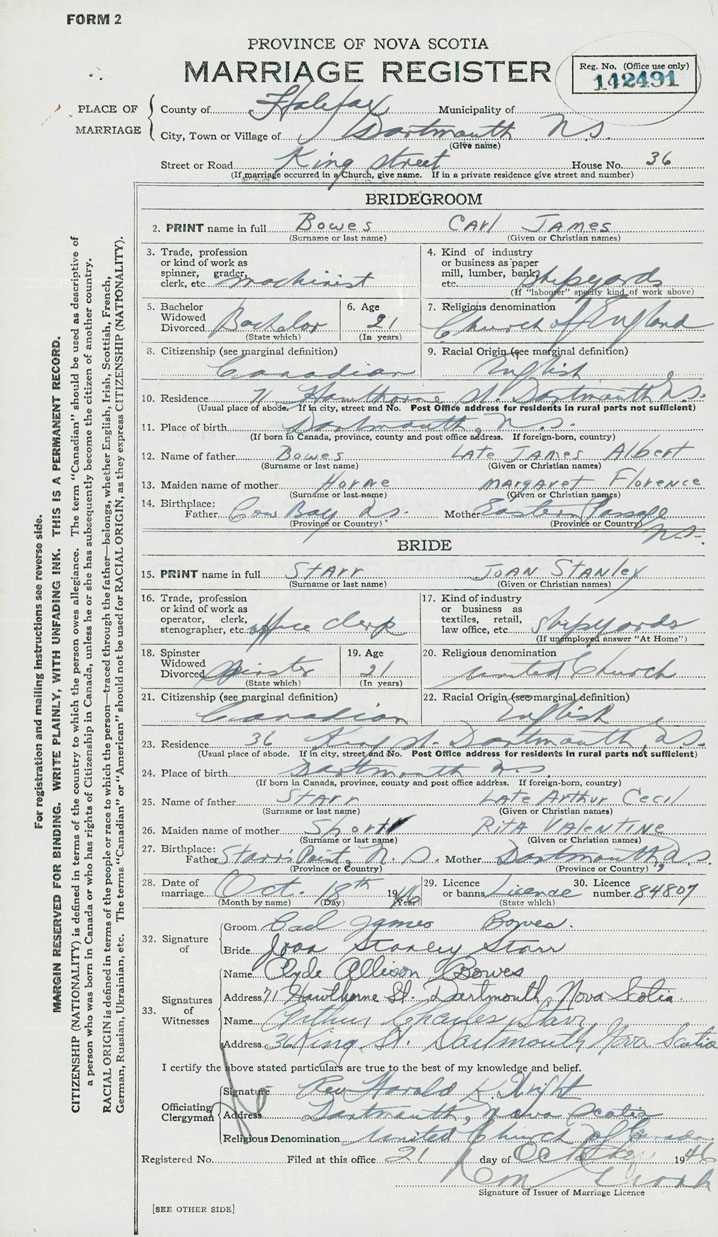 FORM 2
PROVINCE OF NOVA SCOTIA
MARRIAGE REGISTER
Reg. No. (Office use only)
142491
PLACE OF MARRIAGE
County of Halifax Municipality of
City, Town or Village of Dartmouth N.S.
(Give name)
Street or Road King Street House No. 36
(If marriage occurred in a Church, give name. If in a private residence give street and number)
BRIDEGROOM
2. PRINT name in full Bowes Carl James
(Surname or last name) (Given or Christian names)
3. Trade, profession or kind of work as spinner, grader, clerk, etc. machinist
4. Kind of industry or business as paper mill, lumber, bank, etc. Shipyards
(If "labourer" specify kind of work above)
5. Bachelor Widowed Divorced Bachelor
(State which)
6. Age 21
(In years)
7. Religious denomination Church of England
8. Citizenship (see marginal definition) Canadian
9. Racial Origin (see marginal definition) English
10. Residence 71 Hawthorne St. Dartmouth N.S.
(Usual place of abode. If in city, street and No. Post Office address for residents in rural parts not sufficient)
11. Place of birth Dartmouth, N.S.
(If born in Canada, province, county and post office address. If foreign-born, country)
12. Name of father Bowes Late James Albert
(Surname or last name) (Given or Christian names)
13. Maiden name of mother Horne Margaret Florence
(Surname or last name) (Given or Christian names)
14. Birthplace: Father Cow Bay N.S. Mother Eastern Passage N.S.
(Province or Country) (Province or Country)
BRIDE
15. PRINT name in full Starr Joan Stanley
(Surname or last name) (Given or Christian names)
16. Trade, profession or kind of work as operator, clerk, stenographer, etc. office clerk
17. Kind of industry or business as textiles, retail, law office, etc. Shipyards
(If unemployed answer "At Home")
18. Spinster Widowed Divorced Spinster
(State which)
19. Age 21
(In years)
20. Religious denomination United Church
21. Citizenship (see marginal definition) Canadian
22. Racial Origin (see marginal definition) English
23. Residence 36 King St. Dartmouth N.S.
(Usual place of abode. If in city, street and No. Post Office address for residents in rural parts not sufficient)
24. Place of birth Dartmouth N.S.
(If born in Canada, province, county and post office address. If foreign-born, country)
25. Name of father Starr Late Arthur Cecil
(Surname or last name) (Given or Christian names)
26. Maiden name of mother Shortt Rita Valentine
(Surname or last name) (Given or Christian names)
27. Birthplace: Father Starr's Point, N.S. Mother Dartmouth N.S.
(Province or Country) (Province or Country)
28. Date of marriage Oct. 18th 1946
(Month by name) (Day) (Year)
29. Licence or banns License
(State which)
30. Licence number 84807
32. Signature of
Groom Carl James Bowes.
Bride Joan Stanley Starr
33. Signatures of Witnesses
Name Clyde Allison Bowes
Address 71 Hawthorne St. Dartmouth, Nova Scotia.
Name Arthur Charles Starr
Address 36 King St. Dartmouth Nova Scotia
I certify the above stated particulars are true to the best of my knowledge and belief.
Officiating Clergyman
Signature Rev Harold K. Wright
Address Dartmouth, Nova Scotia
Religious Denomination United Church of Canada
Registered No. Filed at this office 21 day of October 1946
Signature of Issuer of Marriage Licence
[SEE OTHER SIDE]
For registration and mailing instructions see reverse side.
MARGIN RESERVED FOR BINDING. WRITE PLAINLY, WITH UNFADING INK. THIS IS A PERMANENT RECORD.
CITIZENSHIP (NATIONALITY) is defined in terms of the country to which the person owes allegiance. The term "Canadian" should be used as descriptive of
a person who was born in Canada or who has rights of Citizenship in Canada, unless he or she has subsequently become the citizen of another country.
RACIAL ORIGIN is defined in terms of the people or race to which the person—traced through the father—belongs, whether English, Irish, Scottish, French,
German, Russian, Ukrainian, etc. The terms "Canadian" or "American" should not be used for RACIAL ORIGIN, as they express CITIZENSHIP (NATIONALITY).